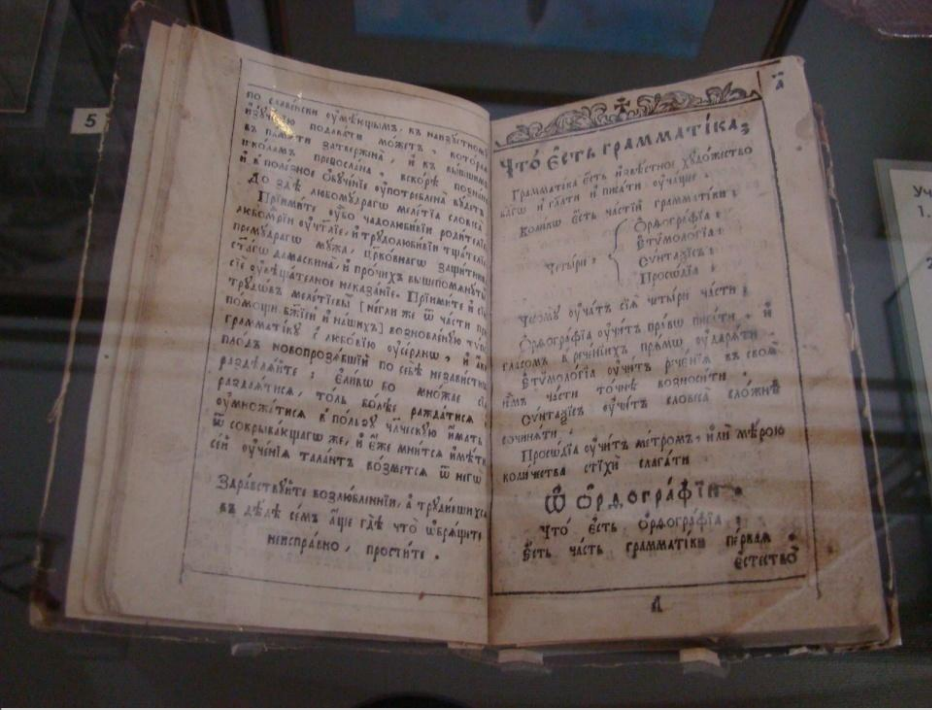 5
по славенски ᲂумѣющымъ, къ наизустному
изученїю подвести можетъ, котораѧ
въ памѧти затвержена, и къ вышшимъ
школамъ превослана вскорѣ познана
и въ полезное ѻбученїе ᲂупотреблена бꙋдетъ
До здѣ любомꙋдрагѡ мелетїѧ словеса
Прїимите ᲂубо чадолюбивїи родителїе
любомꙋдрїи ᲂучт҃лїе, и трудолюбивїи тщателїе
премꙋдрагѡ мꙋжа, цр҃ковнагѡ защитника
ст҃агѡ дамаскина, и прочихъ вышепомѧнꙋты
сїе ᲂувѣщателное наказанїе. Прїимите и сїю
трꙋдѡвъ мелетїевы [негли же ѿ части при
помощи бж҃їей и нашихъ] возновленꙋю
грамматїкꙋ с̾ любовїю ᲂусердною, и ꙗкѡ
плодъ новопрозѧбшїй по себѣ независтнѡ
раздѣлѧйте: Єликѡ бо множае сїѧ
раздаѧтисѧ, толь болѣе раждатисѧ и
ᲂумножатисѧ в̾ пользꙋ чл҃ческꙋю имать
ѿ сокрывающагѡ же, и єже мнитсѧ имѣти
сей ᲂученїѧ талантъ возметсѧ ѿ негѡ
Здравствꙋйте возлюбленнїи, а трꙋдившихсѧ
въ дѣлѣ семъ аще гдѣ что ѡбрѧщете
неисправно, простите.
а҃
Что́ єсть грамматїка;
Грамматїка єсть извѣстное хꙋдожество
благѡ и гл҃ати и писати ᲂучащее.
Коликѡ єсть частїй грамматїки;
Четыри,
Ѻрѳографїа,
Етѷмологїа,
Сѷнтаѯїсъ,
Просѡдїа,
Чесомꙋ ᲂучатъ сїѧ четыри части;
Ѻрѳографїа ᲂучитъ правѡ писати, и
гласомъ в̾ реченїихъ прѧмѡ ᲂударѧти.
Етѷмологїа ᲂучитъ речєнїѧ въ своѧ
имъ части точнѣ возносити.
Сѷнтаѯїсъ ᲂучитъ словеса сложнѣ
сочинѧти.
Просѡдїа ᲂучитъ метромъ, или мѣрою
количества стїхи слагати.
Ѿ Ѻрѳографїи.
Что́ єсть ѻрѳографїа;
Єсть часть грамматїки первая.
єстество
а
Уч
1.
2